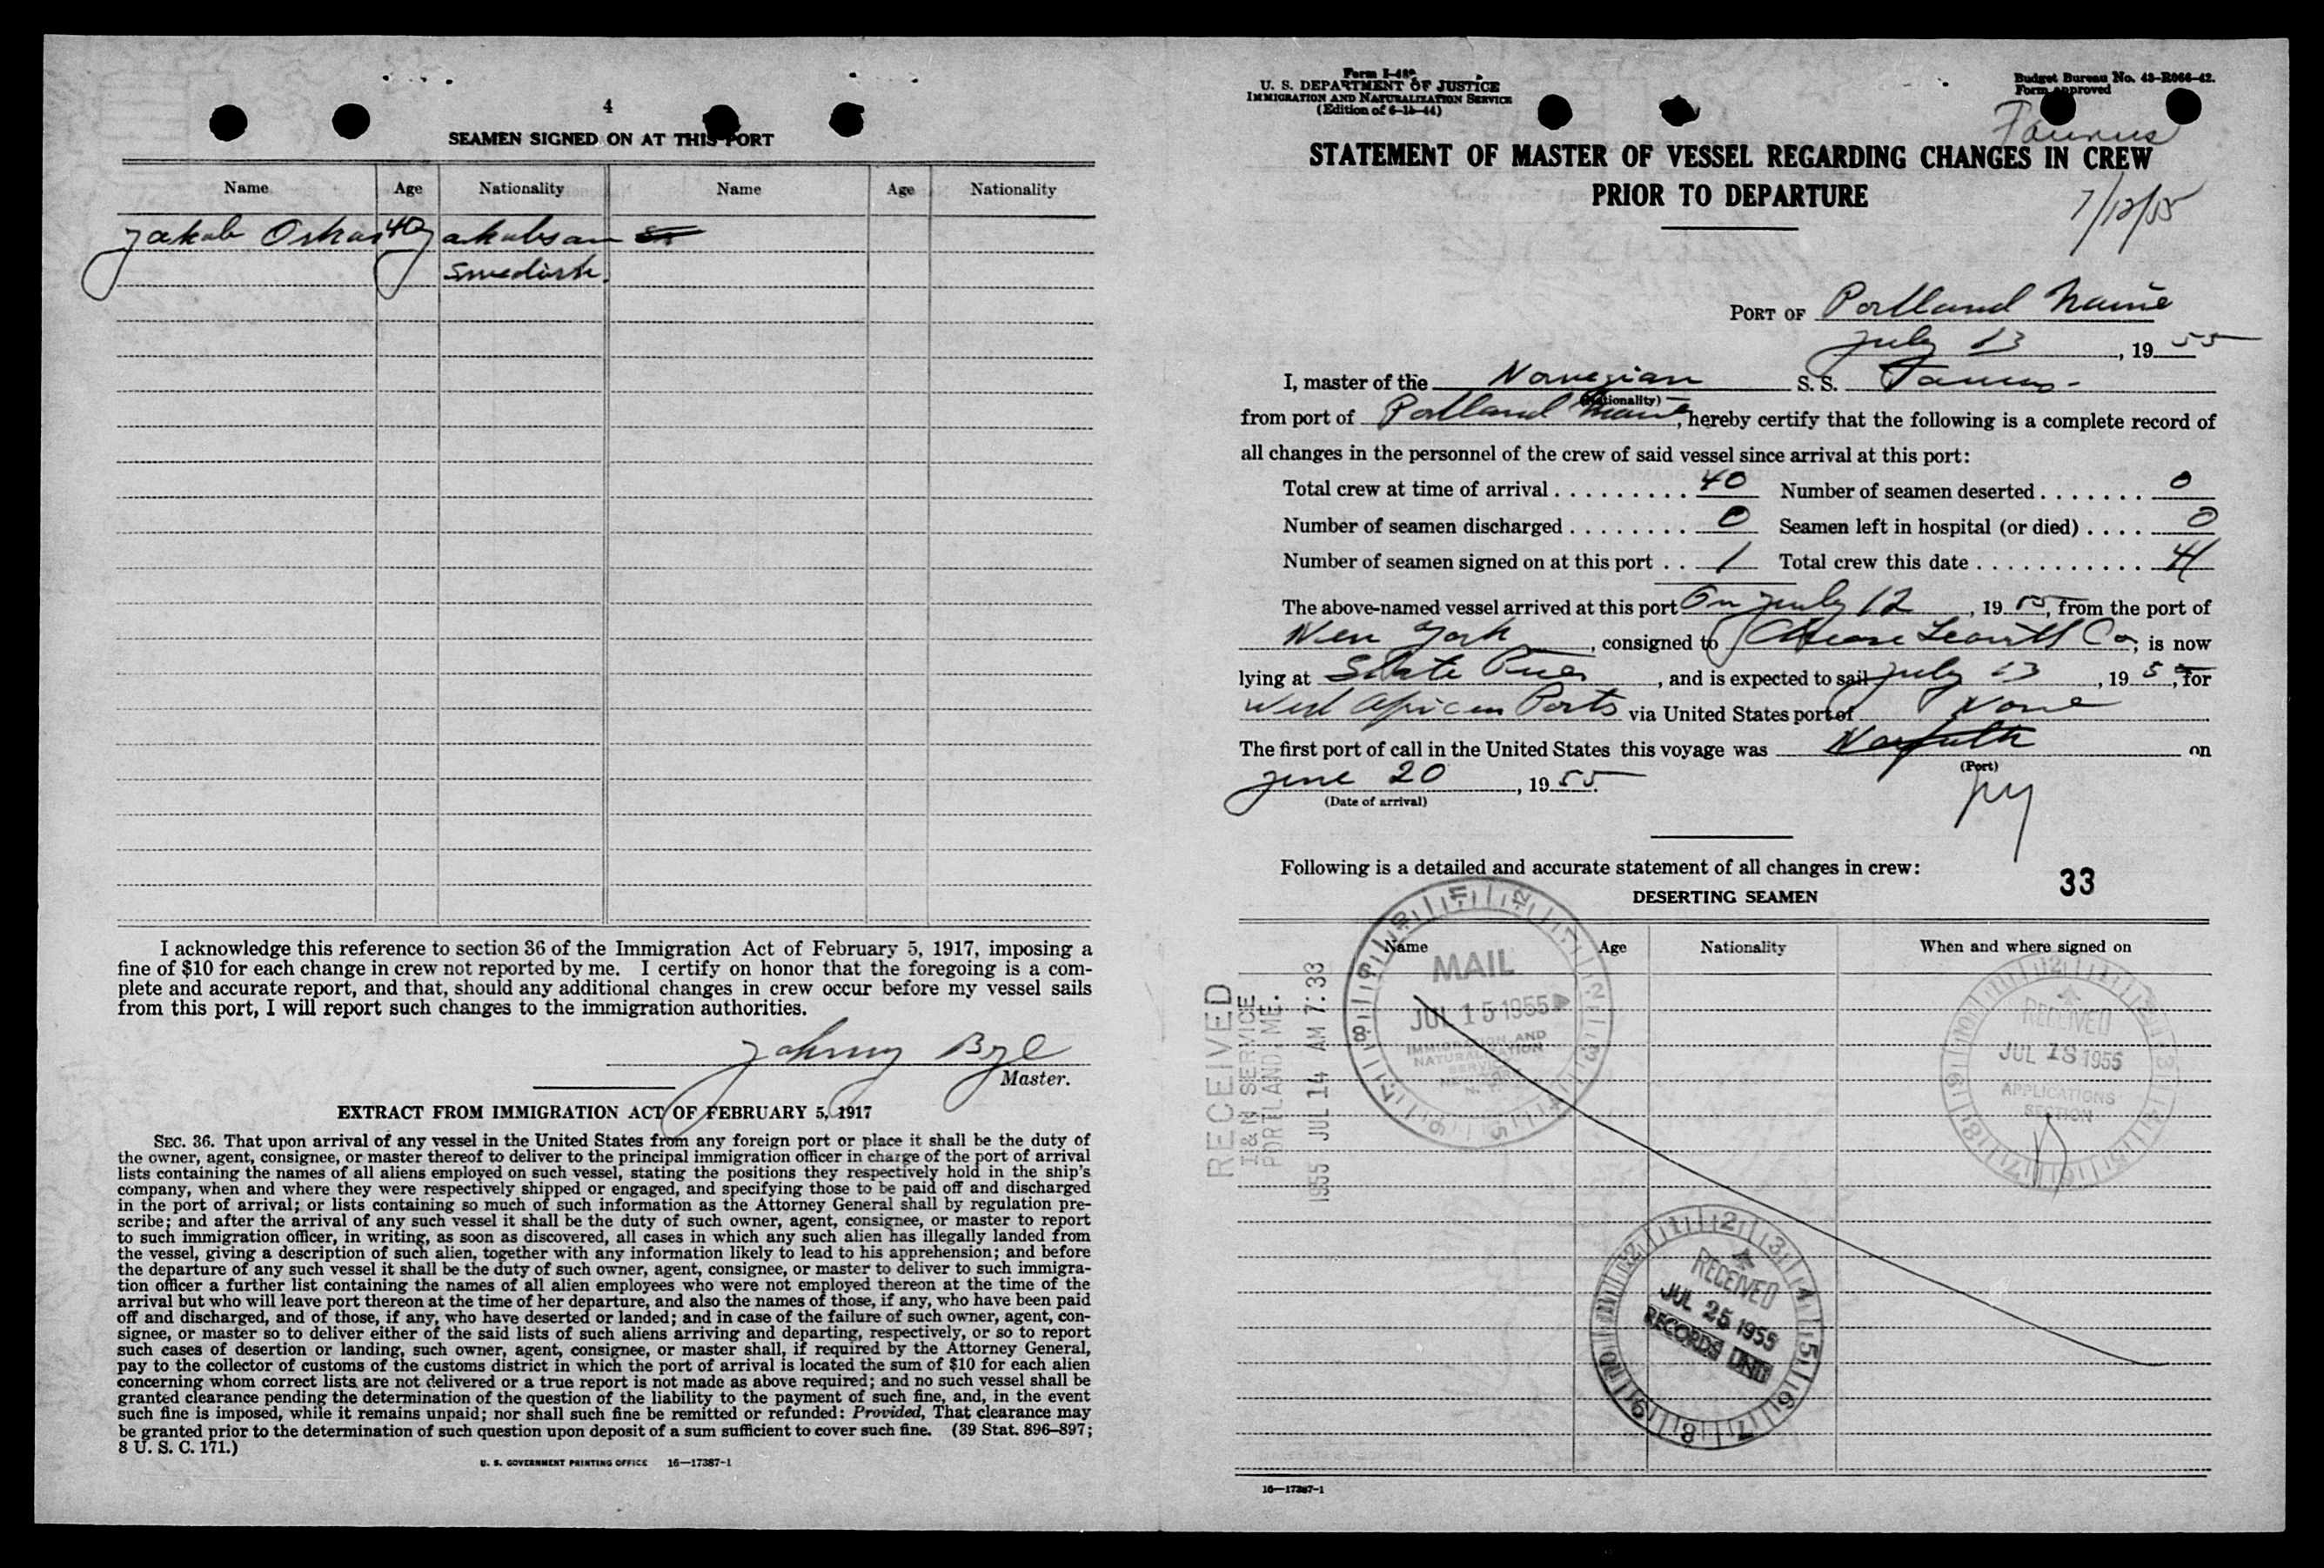 4
SEAMEN SIGNED ON AT THIS PORT
Name Age Nationality Name Age Nationality
Jakob Oskar 40 Jakobsan
Swedish.
I acknowledge this reference to section 36 of the Immigration Act of February 5, 1917, imposing a
fine of $10 for each change in crew not reported by me. I certify on honor that the foregoing is a com-
plete and accurate report, and that, should any additional changes in crew occur before my vessel sails
from this port, I will report such changes to the immigration authorities.
Johnny
Master.
EXTRACT FROM IMMIGRATION ACT OF FEBRUARY 5, 1917
SEC. 36. That upon arrival of any vessel in the United States from any foreign port or place it shall be the duty of
the owner, agent, consignee, or master thereof to deliver to the principal immigration officer in charge of the port of arrival
lists containing the names of all aliens employed on such vessel, stating the positions they respectively hold in the ship's
company, when and where they were respectively shipped or engaged, and specifying those to be paid off and discharged
in the port of arrival; or lists containing so much of such information as the Attorney General shall by regulation pre-
scribe; and after the arrival of any such vessel it shall be the duty of such owner, agent, consignee, or master to report
to such immigration officer, in writing, as soon as discovered, all cases in which any such alien has illegally landed from
the vessel, giving a description of such alien, together with any information likely to lead to his apprehension; and before
the departure of any such vessel it shall be the duty of such owner, agent, consignee, or master to deliver to such immigra-
tion officer a further list containing the names of all alien employees who were not employed thereon at the time of the
arrival but who will leave port thereon at the time of her departure, and also the names of those, if any, who have been paid
off and discharged, and of those, if any, who have deserted or landed; and in case of the failure of such owner, agent, con-
signee, or master so to deliver either of the said lists of such aliens arriving and departing, respectively, or so to report
such cases of desertion or landing, such owner, agent, consignee, or master shall, if required by the Attorney General,
pay to the collector of customs of the customs district in which the port of arrival is located the sum of $10 for each alien
concerning whom correct lists are not delivered or a true report is not made as above required; and no such vessel shall be
granted clearance pending the determination of the question of the liability to the payment of such fine, and, in the event
such fine is imposed, while it remains unpaid; nor shall such fine be remitted or refunded: Provided, That clearance may
be granted prior to the determination of such question upon deposit of a sum sufficient to cover such fine. (39 Stat. 896–897;
8 U. S. C. 171.)
U. S. GOVERNMENT PRINTING OFFICE 16—17387-1
Form I-489
U. S. DEPARTMENT OF JUSTICE
IMMIGRATION AND NATURALIZATION SERVICE
(Edition of 6-15-44)
Budget Bureau No. 43-R066-42.
Form approved
Taurus
STATEMENT OF MASTER OF VESSEL REGARDING CHANGES IN CREW
PRIOR TO DEPARTURE
7/12/55
PORT OF Portland Maine
July 13, 1955
I, master of the Norwegian S. S. Taurus
(Nationality)
from port of Portland Maine, hereby certify that the following is a complete record of
all changes in the personnel of the crew of said vessel since arrival at this port:
Total crew at time of arrival 40 Number of seamen deserted 0
Number of seamen discharged 0 Seamen left in hospital (or died) 0
Number of seamen signed on at this port 1 Total crew this date 41
The above-named vessel arrived at this port On July 12, 1955, from the port of
New York, consigned to Chase Leavitt Co, is now
lying at State Pier, and is expected to sail July 13, 1955, for
West African Ports via United States port of None
The first port of call in the United States this voyage was Norfolk on
(Port)
June 20, 1955.
(Date of arrival)
NY
Following is a detailed and accurate statement of all changes in crew:
33
DESERTING SEAMEN
Name Age Nationality When and where signed on
RECEIVED
I & N SERVICE
PORTLAND, ME.
1955 JUL 14 AM 7:33
MAIL
JUL 15 1955
IMMIGRATION AND
NATURALIZATION
SERVICE
RECEIVED
JUL 18 1955
APPLICATIONS
SECTION
RECEIVED
JUL 25 1955
RECORDS UNIT
16—17387-1